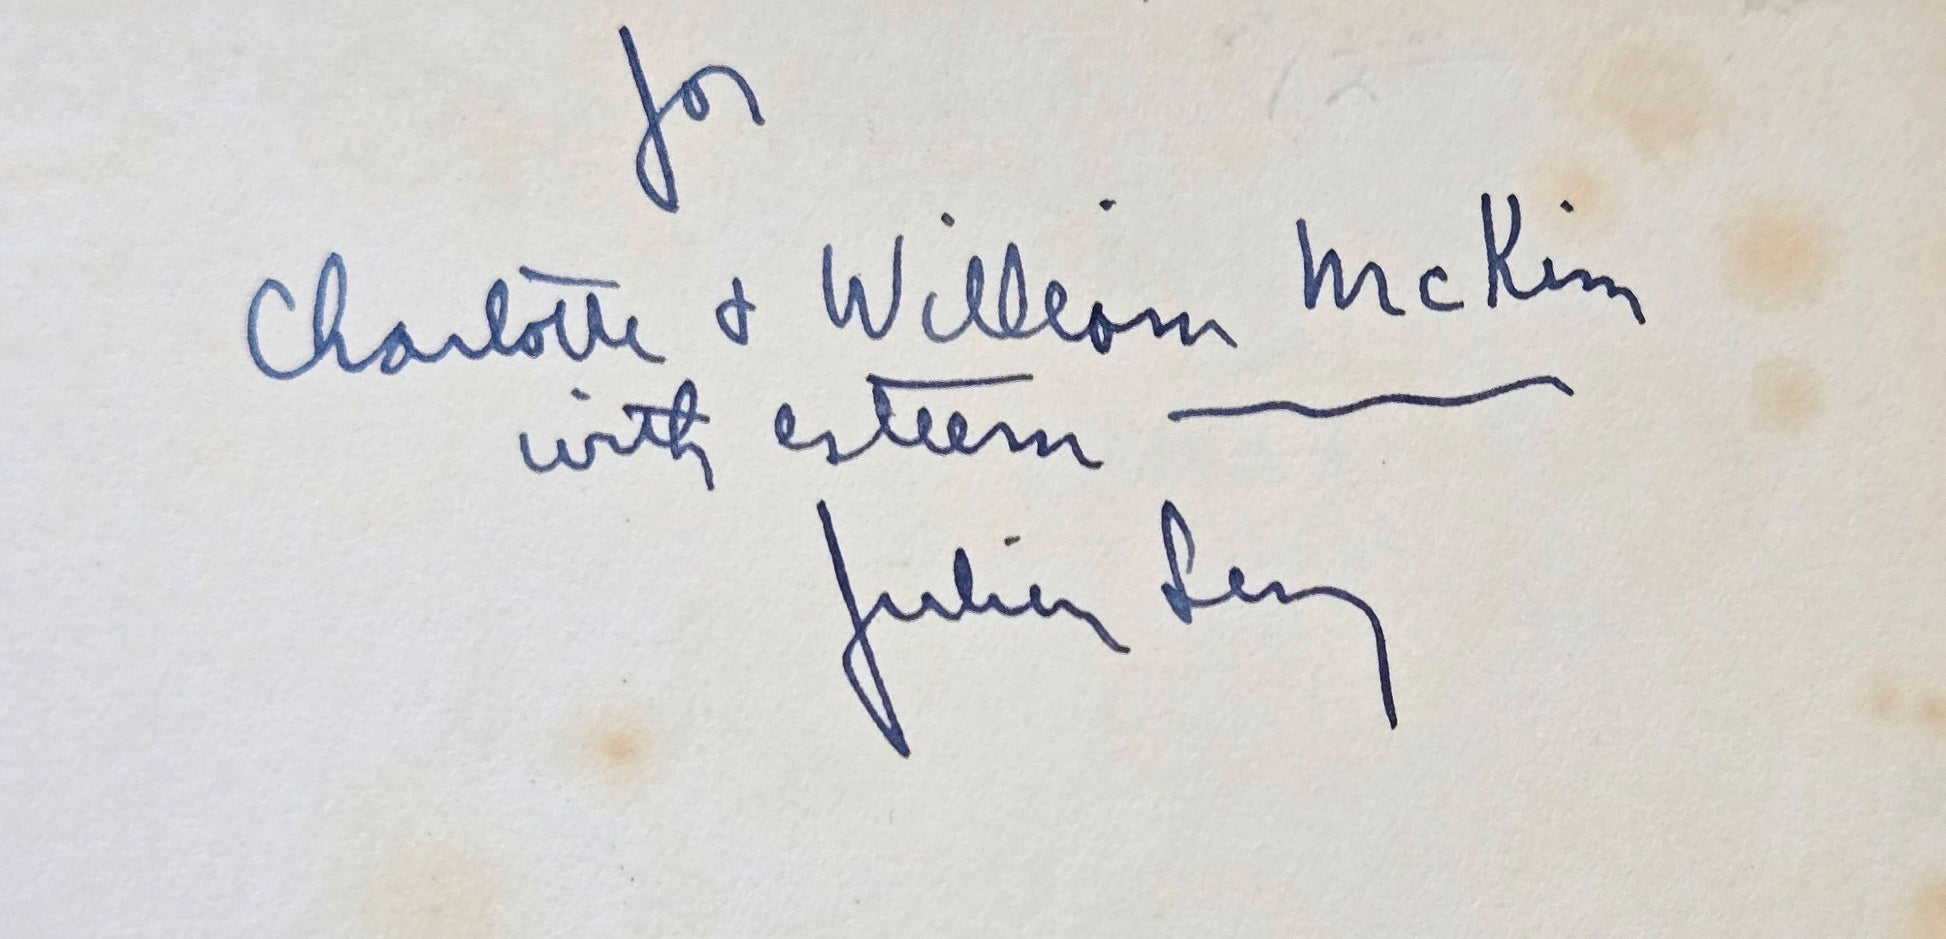 for
Charlotte & William McKim
with esteem
Julien Levy